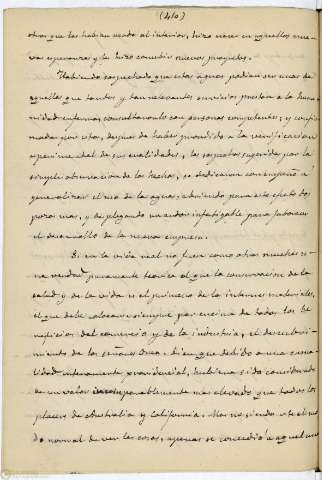 (410)
otros que las habian usado al interior, hizo nacer en aquellos nue-
vas esperanzas y les hizo concebir nuevos proyectos.
Habiendo sospechado que estas aguas podian ser unas de
aquellas que tantos y tan relevantes servicios prestan a la huma-
nidad enferma, consultaronlo con personas competentes; y confir-
mada por estos, despues de haber procedido a la verificacion
esperimental de sus cualidades, la sospecha sugerida por la
simple observacion de los hechos, se dedicaron con empeño a
generalizar el uso de las aguas; abriendo para este efecto dos
pozos mas, y desplegando un ardor infatigable para favorecer
el desarrollo de la nueva empresa.
Si en la vida real no fuera como otras muchas
una verdad puramente teorica el que la conservacion de la
salud y de la vida es el primero de los intereses materiales,
el que debe colocarse siempre por encima de todos los be-
neficios del comercio y de la industria, el descubri-
miento de los señores bien que debido a una casua-
lidad enteramente providencial, hubiera sido considerado
de un valor incomparablemente mas elevado que todos los
placeres de Australia y California. Mas no siendo este el mo-
do normal de ver las cosas, apenas se concedió a aquel una